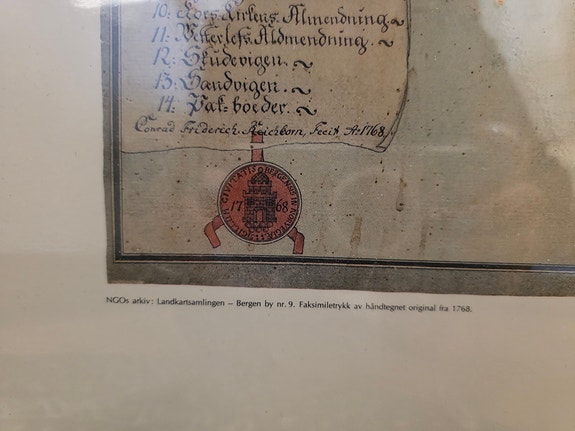 10: Kors Kirkens Almendning
11: Vetterlefs Aldmendning.
12: Skudevigen.
13: Sandvigen.
14: Pak-boeder.
Conrad Friderich Reichborn, Fecit, A: 1768,
CIVITATIS BERGENSIS IN NORVEGIA SIGILLUM
1768
NGOs arkiv: Landkartsamlingen – Bergen by nr. 9. Faksimiletrykk av håndtegnet original fra 1768.